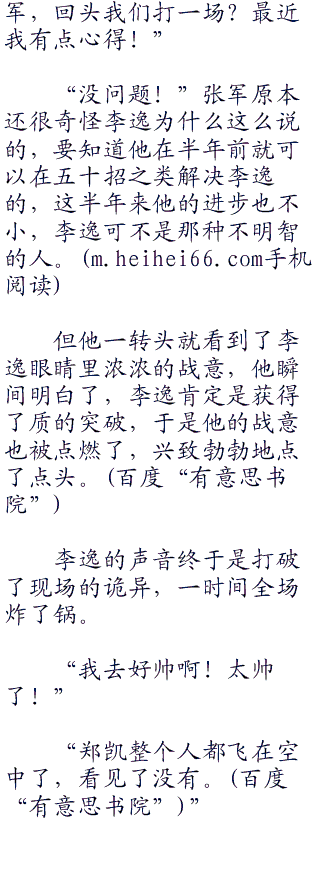 军，回头我们打一场？最近
我有点心得！”
“没问题！”张军原本
还很奇怪李逸为什么这么说
的，要知道他在半年前就可
以在五十招之类解决李逸
的，这半年来他的进步也不
小，李逸可不是那种不明智
的人。(m.heihei66.com手机
阅读)
但他一转头就看到了李
逸眼睛里浓浓的战意，他瞬
间明白了，李逸肯定是获得
了质的突破，于是他的战意
也被点燃了，兴致勃勃地点
了点头。(百度“有意思书
院”)
李逸的声音终于是打破
了现场的诡异，一时间全场
炸了锅。
“我去好帅啊！太帅
了！”
“郑凯整个人都飞在空
中了，看见了没有。(百度
“有意思书院”)”